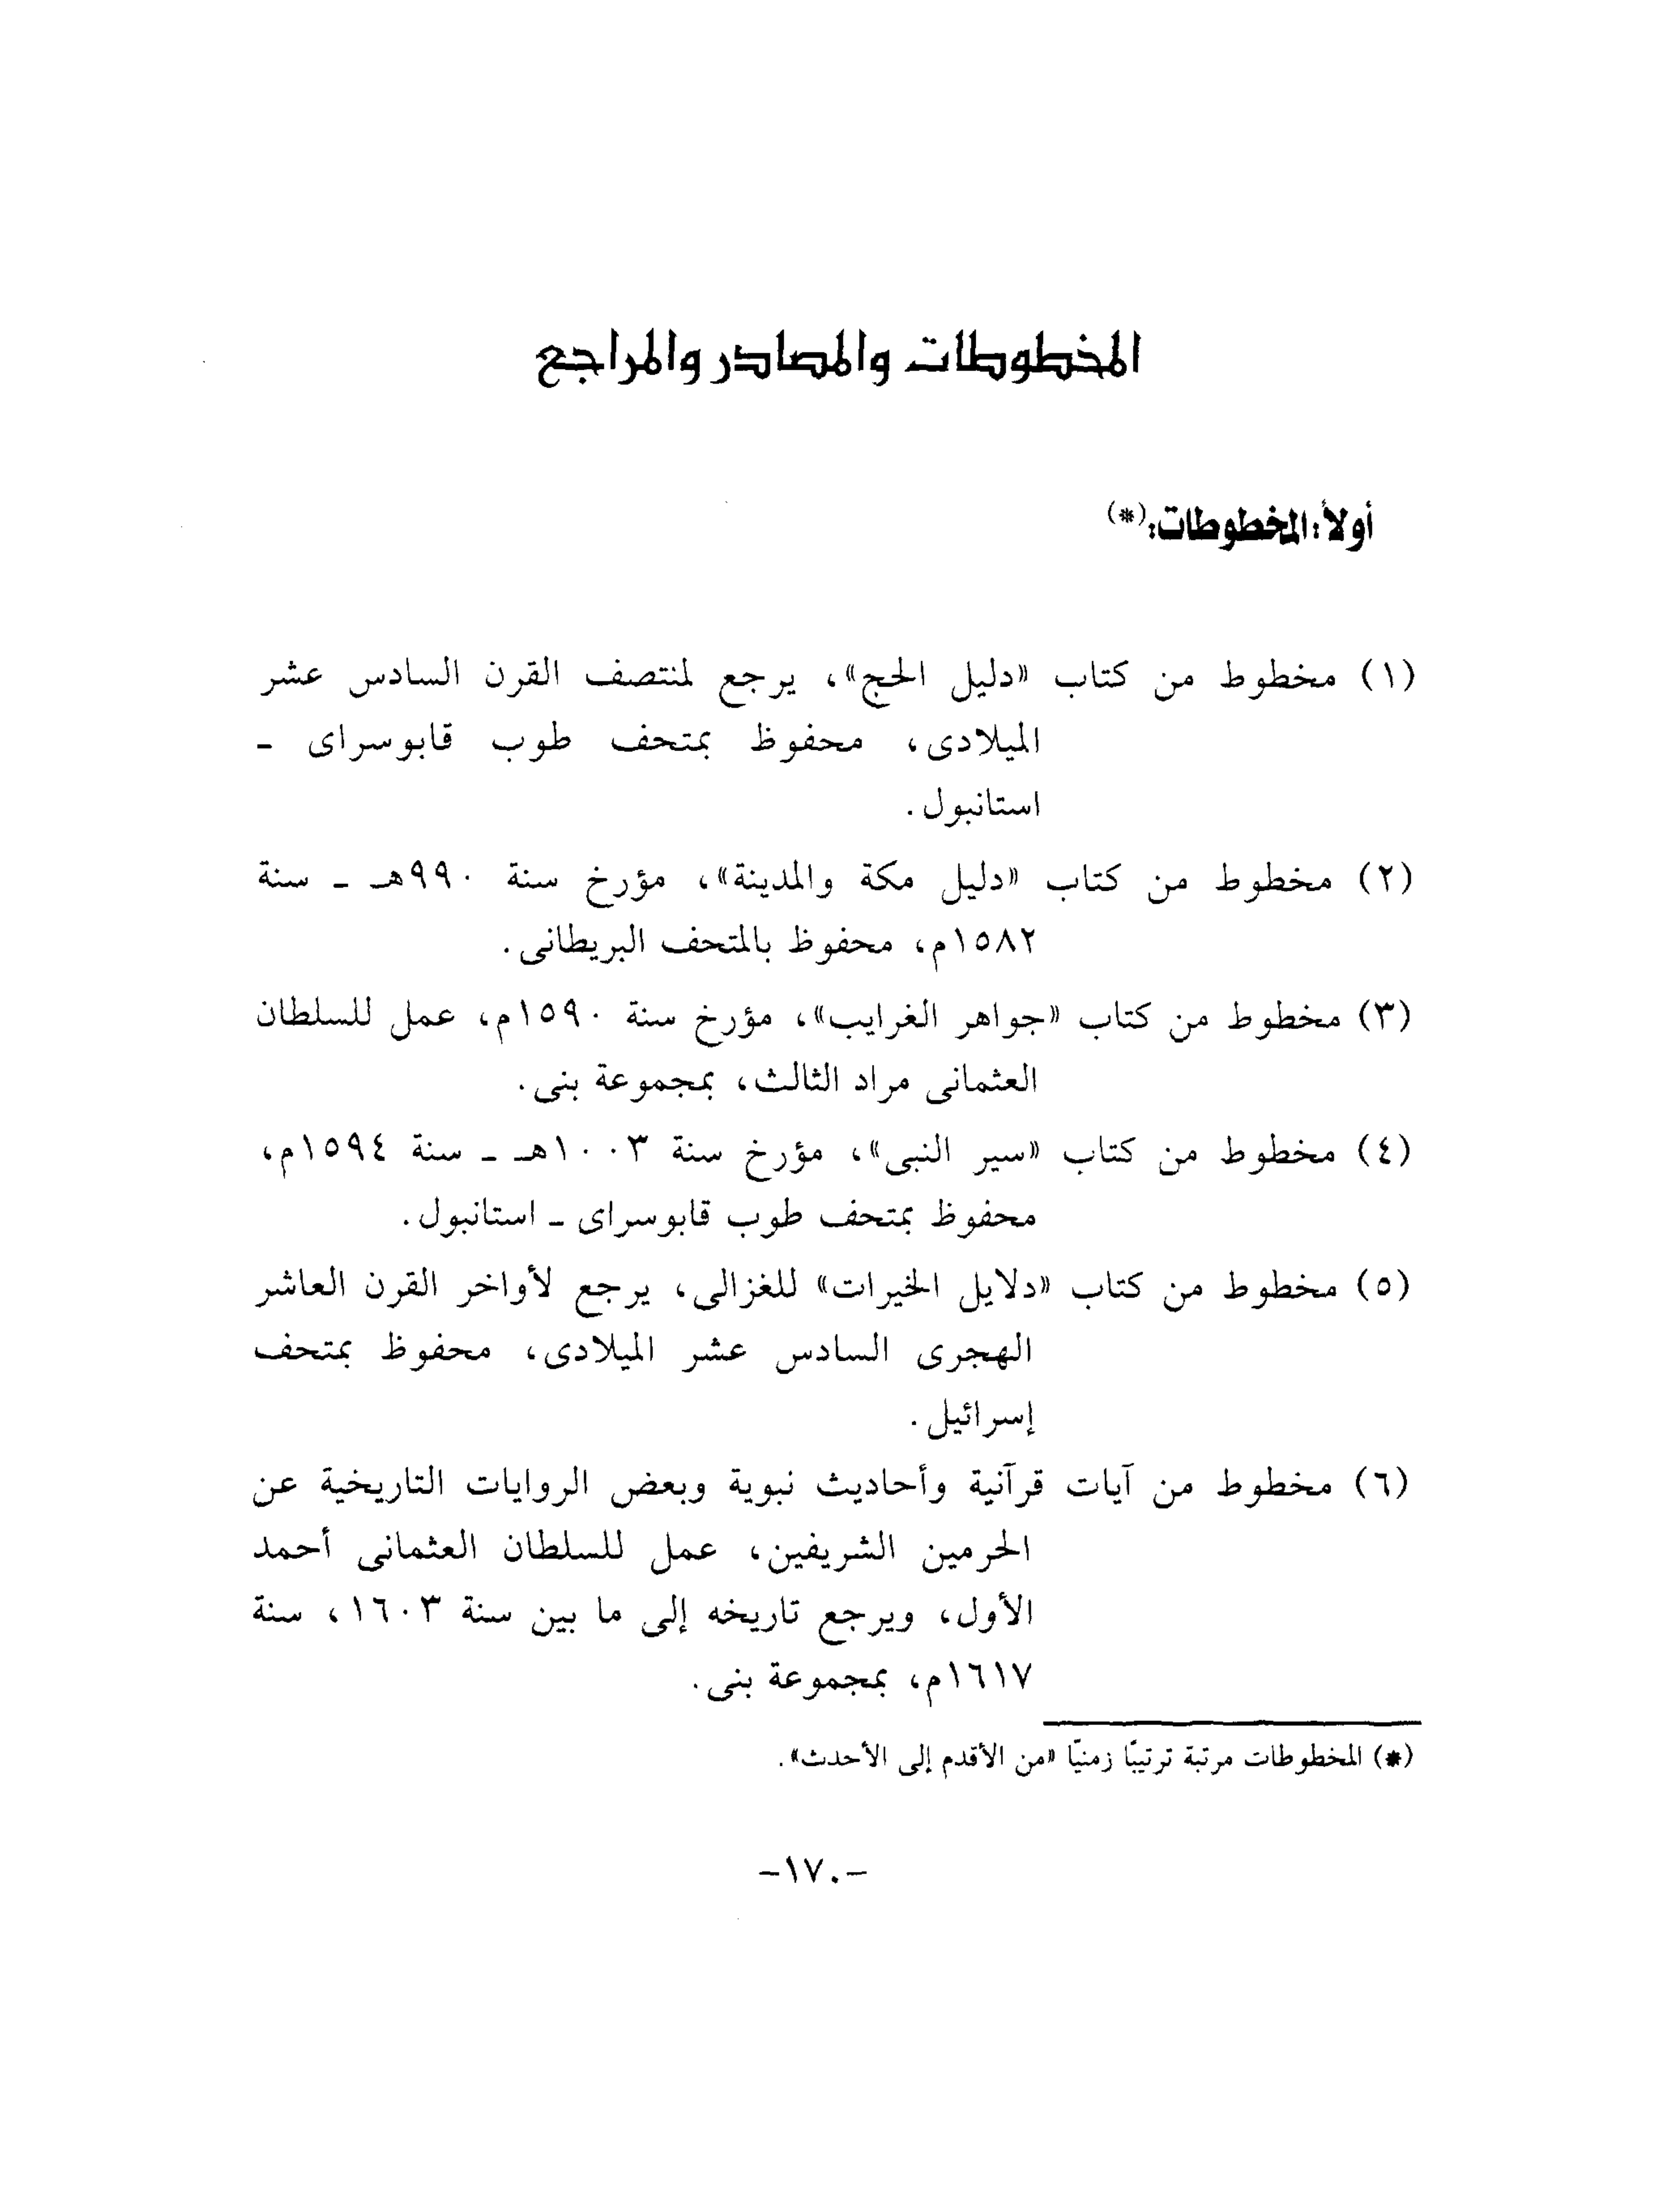 المخطوطات والمصادر والمراجع
أولاً: المخطوطات: (*)
(١) مخطوط من كتاب «دليل الحج»، يرجع لمنتصف القرن السادس عشر
الميلادى، محفوظ بمتحف طوب قابوسراى -
استانبول.
(٢) مخطوط من كتاب «دليل مكة والمدينة»، مؤرخ سنة ٩٩٠هـ - سنة
١٥٨٢م، محفوظ بالمتحف البريطانى.
(٣) مخطوط من كتاب «جواهر الغرايب»، مؤرخ سنة ١٥٩٠م، عمل للسلطان
العثمانى مراد الثالث، بمجموعة بنى.
(٤) مخطوط من كتاب «سير النبى»، مؤرخ سنة ١٠٠٣هـ - سنة ١٥٩٤م،
محفوظ بمتحف طوب قابوسراى - استانبول.
(٥) مخطوط من كتاب «دلايل الخيرات» للغزالى، يرجع لأواخر القرن العاشر
الهجرى السادس عشر الميلادى، محفوظ بمتحف
إسرائيل.
(٦) مخطوط من آيات قرآنية وأحاديث نبوية وبعض الروايات التاريخية عن
الحرمين الشريفين، عمل للسلطان العثمانى أحمد
الأول، ويرجع تاريخه إلى ما بين سنة ١٦٠٣، سنة
١٦١٧م، بمجموعة بنى.
(*) المخطوطات مرتبة ترتيبًا زمنيًا «من الأقدم إلى الأحدث».
-١٧٠-